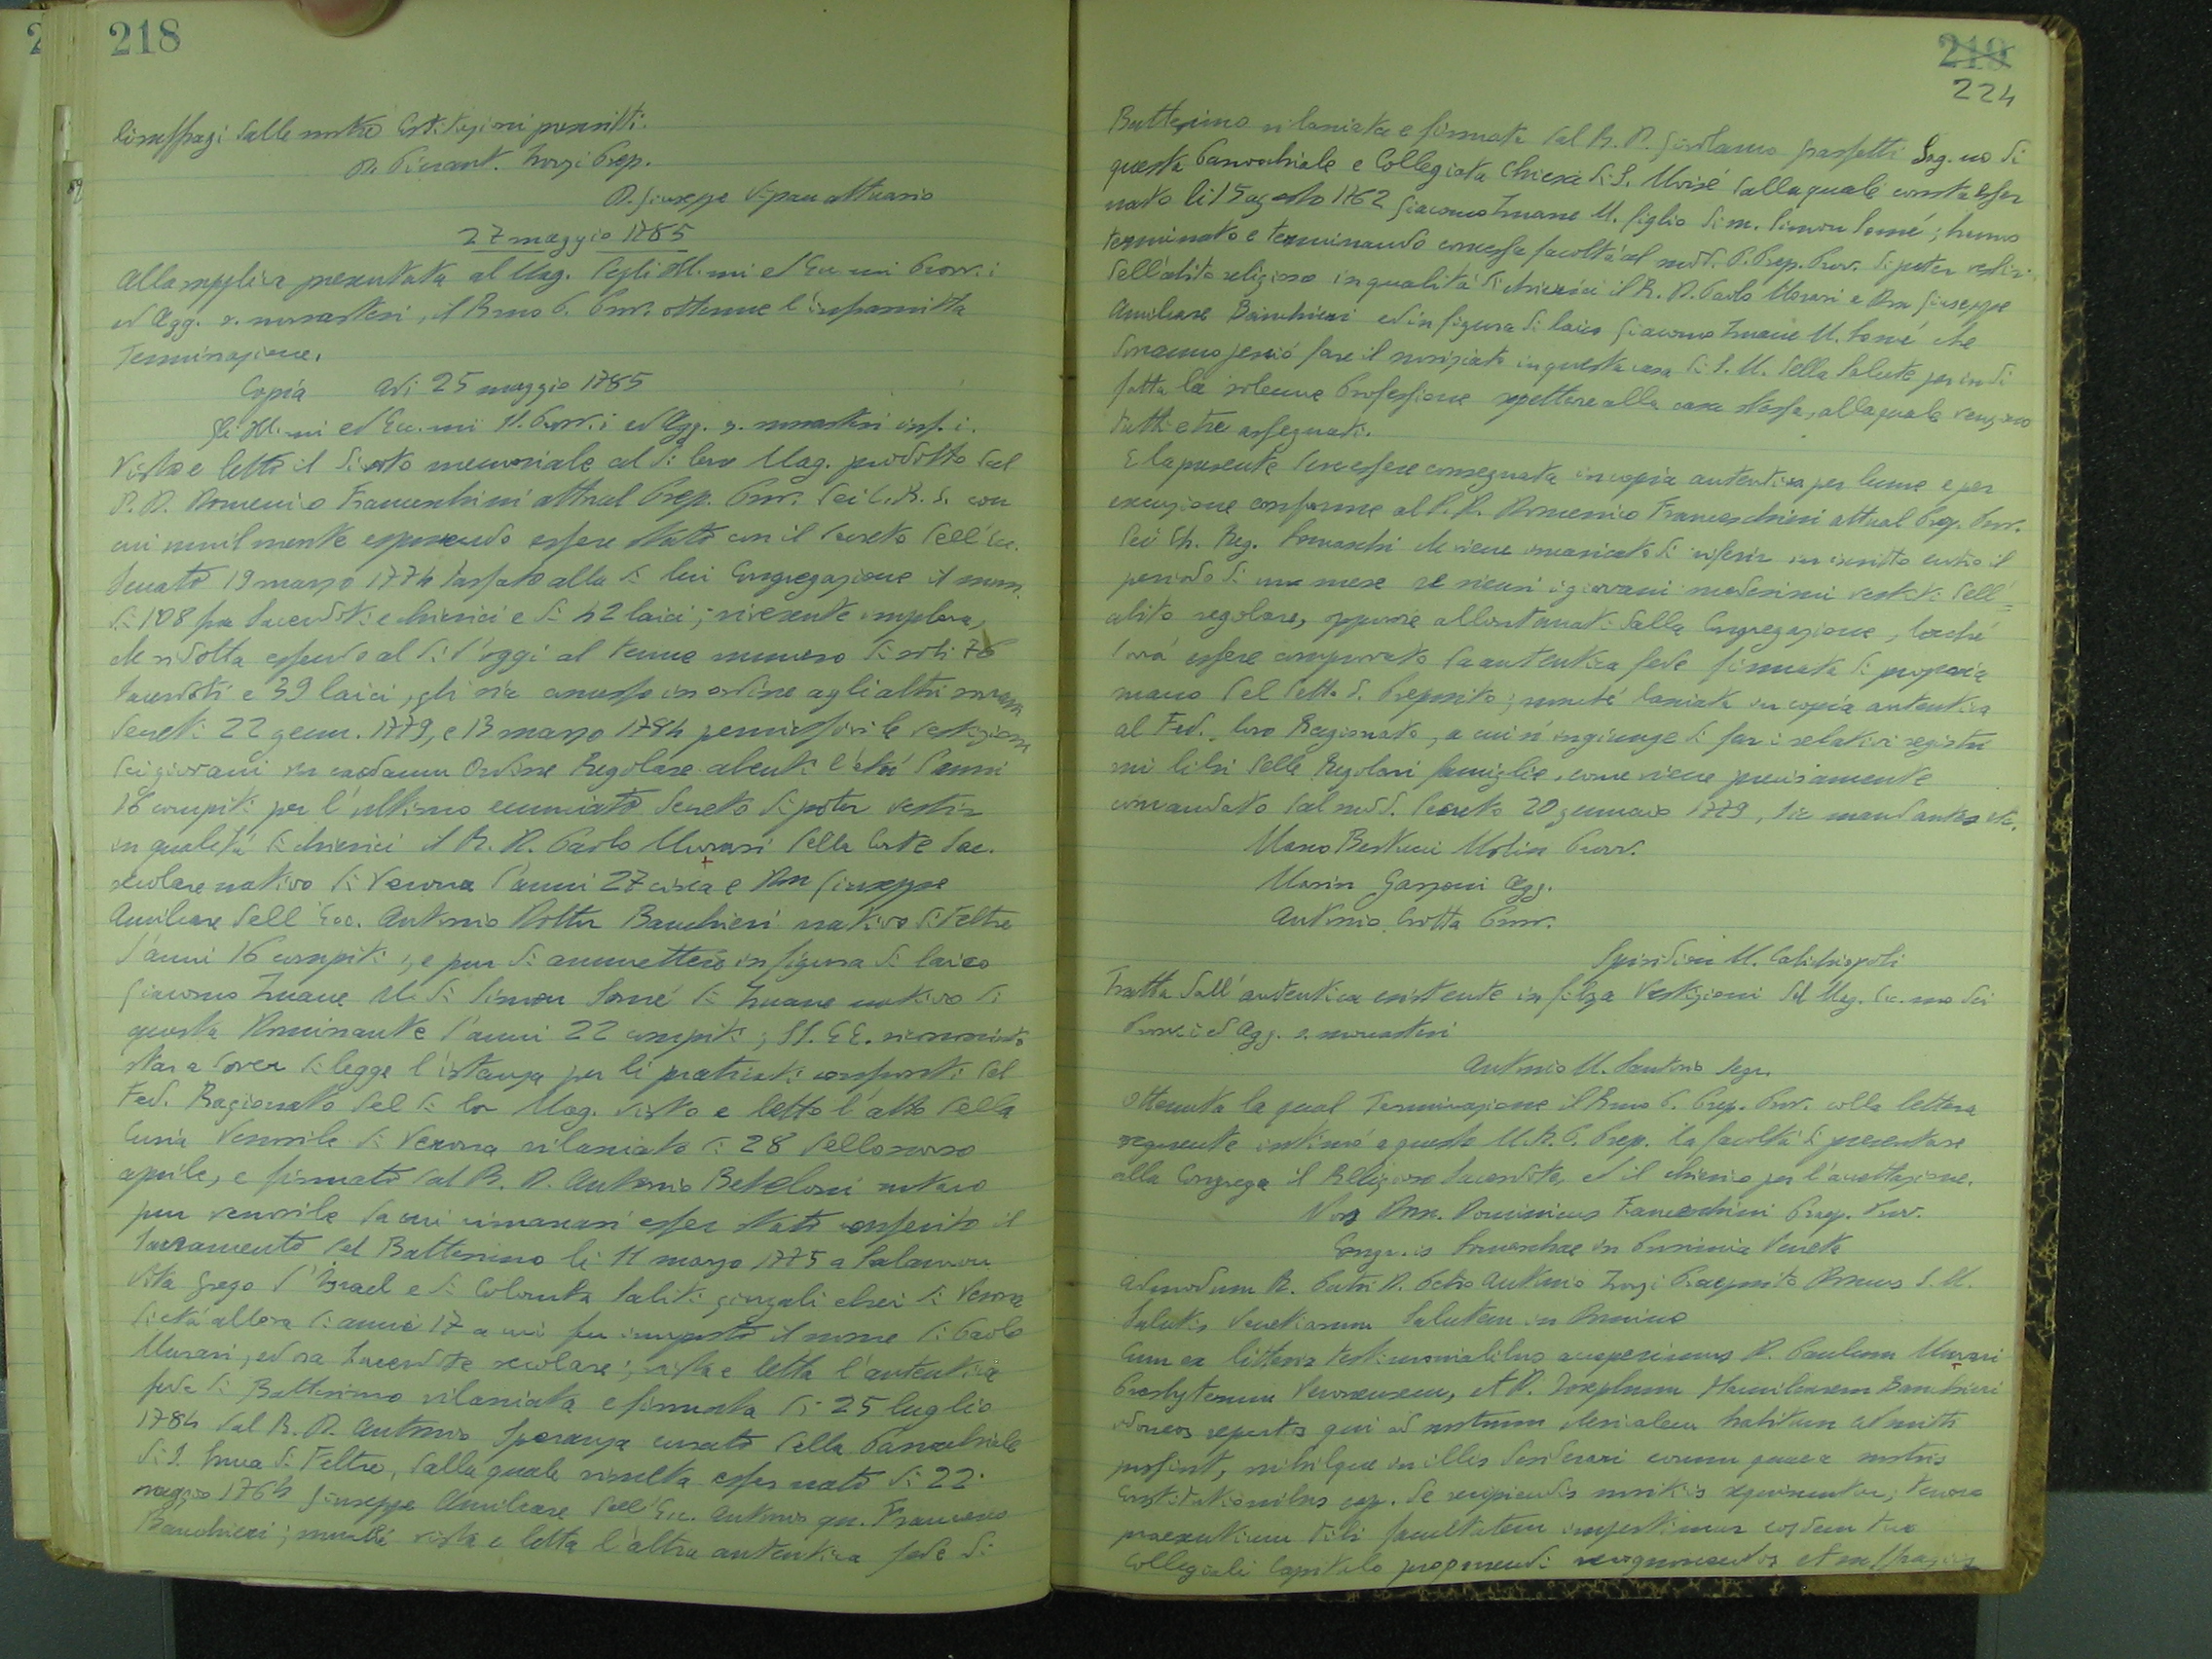 218
li suffragi dalle nostre Costituzioni prescritti.
D. Pierant. Zorzi Prep.
D. Giuseppe Vipau attuario
27 maggio 1785
Alla supplica presentata al Mag. degli Ill.mi ed Ecc.mi Provv.i
ed Agg. s. monasteri, il Rmo P. Prov. ottenne l'infrascritta
Terminazione.
Copia Adi 25 maggio 1785
Gli Ill.mi ed Ecc.mi SS. Provv.i ed Agg. s. monasteri inf.i.
Visto e letto il divoto memoriale al di loro Mag. prodotto dal
P. D. Domenico Franceschini attual Prep. Prov. dei C. R. S. con
cui umilmente esponendo essere stato con il Decreto dell'Ecc.
Senato 19 marzo 1774 tassato alla di lui Congregazione il num.
di 108 fra Sacerdoti e chierici e di 42 laici; riverente implora,
che ridotta essendo al dì d'oggi al tenue numero di soli 76
Sacerdoti e 39 laici, gli sia concesso in ordine agli altri
Decreti 22 genn. 1779, e 13 marzo 1784 permissivi le vestizioni
dei giovani in cadaun Ordine Regolare abenti l'età d'anni
16 compiti per l'ultimo enunciato Decreto di poter vestir
in qualità di chierici il R. D. Paolo Murari della Corte Sac.
secolare nativo di Verona d'anni 27 circa e Dn Giuseppe
Amilcare dell'Ecc. Antonio Dottor Banchieri nativo di Feltre
d'anni 16 compiti; e pur di ammettere in figura di laico
Giacomo Zuane M. di Simon Somé di Zuane nativo di
questa Dominante d'anni 22 compiti; SS. EE. riconosciuta
star a dover di legge l'istanza per li praticati confronti dal
Fed. Ragionato del di lor Mag. visto e letto l'atto della
Curia Vescovile di Verona rilasciato di 28 dello scorso
aprile, e firmato dal R. D. Antonio Beteloni notaro
pur vescovile da cui rimarcasi esser stato conferito il
Sacramento del Battesimo li 11 marzo 1775 a Salamon
Vita Grego d'Israel e di Colomba Saliti giugali ebrei di Verona
di età allora di anni 17 a cui fu imposto il nome di Paolo
Murari, ed ora Sacerdote secolare; vista e letta l'autentica
fede di Battesimo rilasciata e firmata di 25 luglio
1784 dal R. D. Antonio Speranza curato della Parrocchiale
di S. di Feltre, dalla quale risulta esser nato di 22
maggio 1764 Giuseppe Amilcare dell'Ecc. Antonio qu. Francesco
Banchieri; nonché vista e letta l'altra autentica fede di
219
224
Battesimo rilasciata e firmata dal R. D. Girolamo Sag.no di
questa Parrocchiale e Collegiata Chiesa di S. Moisé dalla quale consta esser
nato li 15 agosto 1762 Giacomo Zuane M. figlio di m. Simon Somé; hanno
terminato e terminando concessa facoltà al sudd. P. Prep. Prov. di poter vestir
dell'abito religioso in qualità di chierici il R. D. Paolo Murari e Dn Giuseppe
Amilcare Banchieri ed in figura di laico Giacomo Zuane M. Somé che
dovranno perciò fare il noviziato in questa casa di S. M. della Salute per indi
fatta la solenne Professione spettare alla casa stessa, alla quale vengono
tutti e tre assegnati.
E la presente dev'essere consegnata in copia autentica per lume e per
esecuzione conforme al P. D. Domenico Franceschini attual Prep. Prov.
dei Ch. Reg. Somaschi che viene incaricato di riferir in iscritto entro il
periodo di un mese se siensi i giovani medesimi vestiti dell'
abito regolare, oppure allontanati dalla Congregazione, locché
dovrà essere comprovato da autentica fede firmata di propria
mano del detto P. Preposito; nonché lasciata in copia autentica
al Fed. loro Ragionato, a cui s'ingiunge di far i relativi registri
nei libri delle Regolari famiglie, come viene precisamente
comandato dal sudd. Decreto 20 gennaio 1779, sic mandantes etc.
Marco Bertucci Molin Provv.
Marin Garzoni Agg.
Antonio Grotta Provv.
Spiridion M. Calichiopoli
Tratta dall'autentica esistente in filza Vestizioni del Mag. Ecc.mo dei
Provv.i ed Agg. s. monasteri
Antonio M. Santorio Segr.
Ottenuta la qual Terminazione il Rmo P. Prep. Prov. colla lettera
seguente intimò a questo M. R. P. Prep. la facoltà di presentare
alla Congrega il Religioso Sacerdote, ed il chierico per l'accettazione.
Nos Dnn. Dominicus Franceschini Praep. Prov.
Congr.is Somaschae in Provincia Veneta
Admodum R. Patri D. Petro Antonio Zorzi Praeposito Domus S. M.
Salutis Venetiarum Salutem in Domino
Cum ex litteris testimonialibus acceperimus D. Paulum Murari
Presbyterum Veronensem, et D. Josephum Hamilcarem Banchieri
idoneos repertos qui ad nostrum clericalem habitum admitti
possint, nihilque in illis desiderari eorum quae a nostris
Constitutionibus cap. de recipiendis novitiis requiruntur; tenore
praesentium tibi facultatem impertimur eosdem tuo
Collegiali Capitulo proponendi recognoscendos et suffragiis